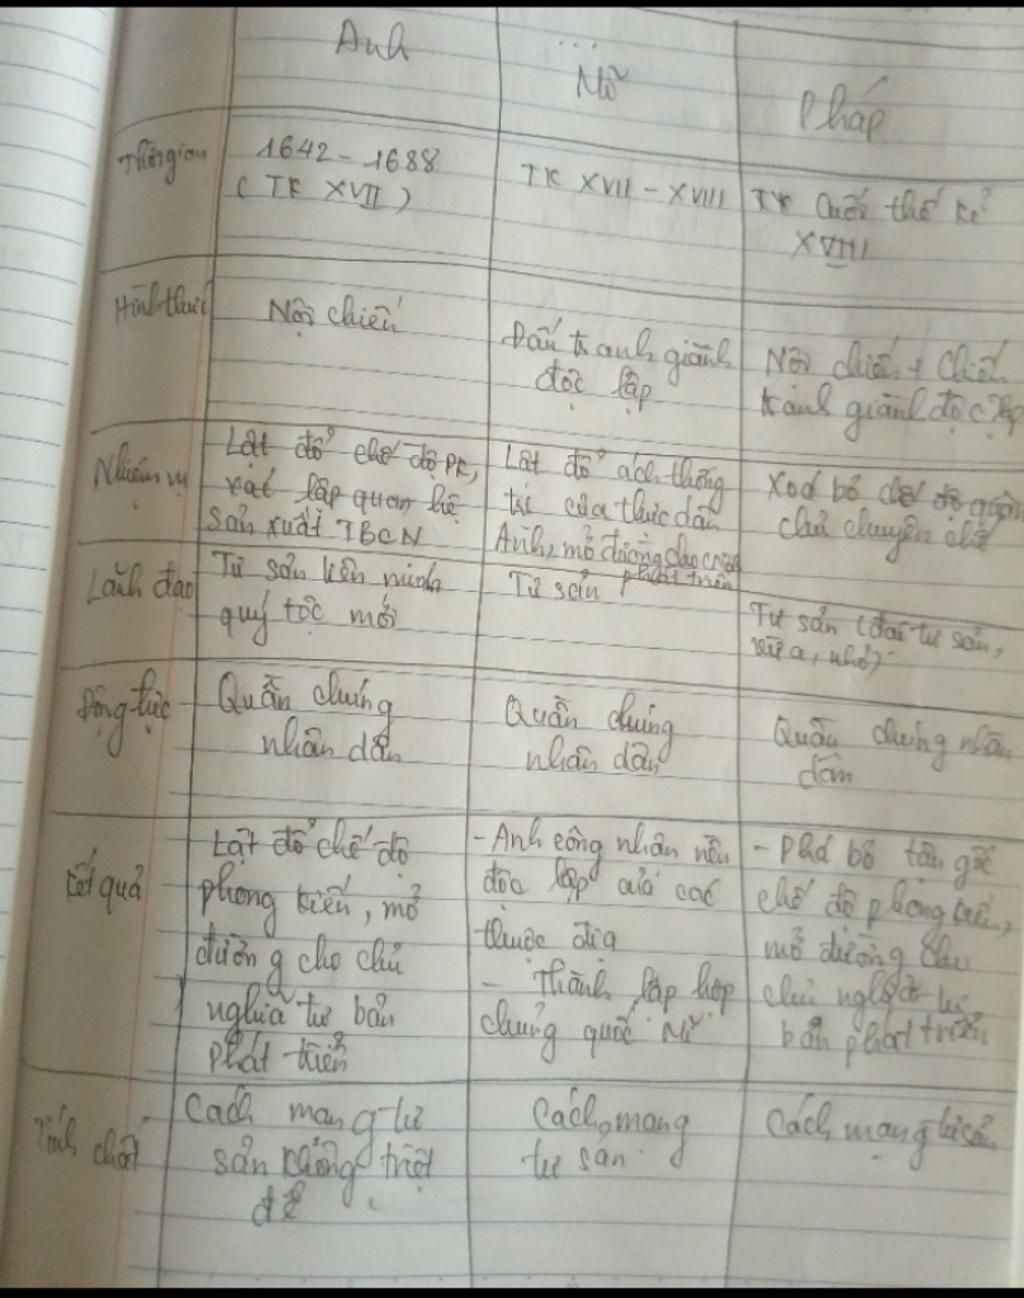 Anh
Mỹ
Pháp
Thời gian
1642 - 1688
(TK XVII)
TK XVII - XVIII
TK Cuối thế kỉ
XVIII
Hình thức
Nội chiến
Đấu tranh giành
độc lập
Nội chiến + Chiến
tranh giành độc lập
Nhiệm vụ
Lật đổ chế độ PK,
xác lập quan hệ
sản xuất TBCN
Lật đổ ách thống
trị của thực dân
Anh, mở đường cho CNTB
phát triển
Xoá bỏ chế độ quân
chủ chuyên chế
Lãnh đạo
Tư sản liên minh
quý tộc mới
Tư sản
Tư sản (đại tư sản,
vừa, nhỏ)
Động lực
Quần chúng
nhân dân
Quần chúng
nhân dân
Quần chúng nhân
dân
Kết quả
Lật đổ chế độ
phong kiến, mở
đường cho chủ
nghĩa tư bản
phát triển
- Anh công nhận nền
độc lập của các
thuộc địa
- Thành lập hợp
chúng quốc Mĩ
- Phá bỏ tận gốc
chế độ phong kiến,
mở đường cho
chủ nghĩa tư
bản phát triển
Tính chất
Cách mạng tư
sản không triệt
để
Cách mạng
tư sản
Cách mạng tư sản